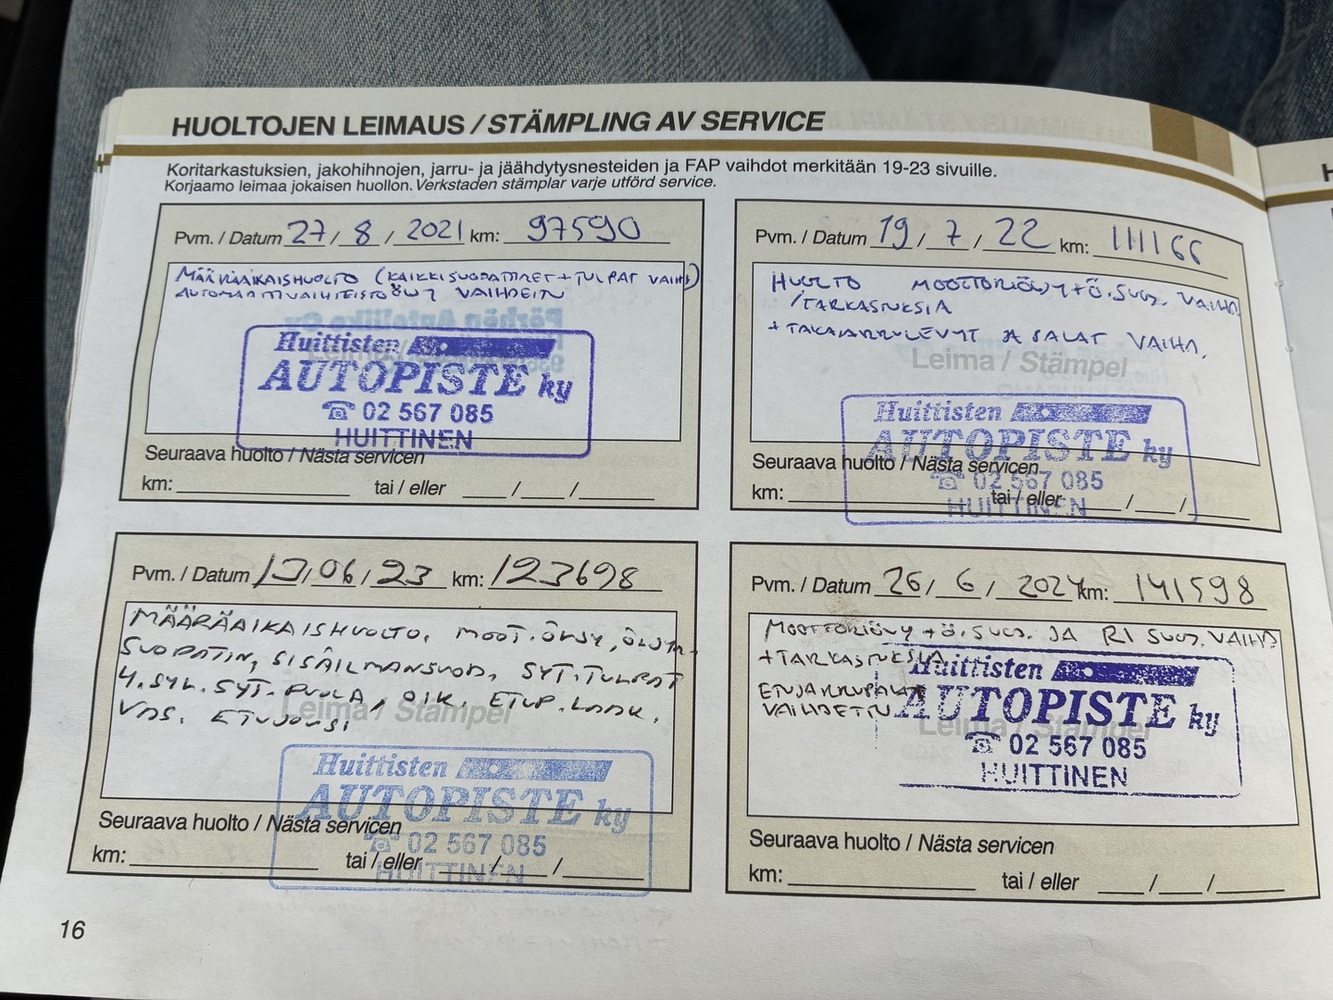 HUOLTOJEN LEIMAUS / STÄMPLING AV SERVICE
Koritarkastuksien, jakohihnojen, jarru- ja jäähdytysnesteiden ja FAP vaihdot merkitään 19-23 sivuille.
Korjaamo leimaa jokaisen huollon. Verkstaden stämplar varje utförd service.
Pvm. / Datum 27 / 8 / 2021 km: 97590
MÄÄRÄAIKAISHUOLTO (KAIKKI SUODATTIMET + TULPAT VAIHD)
AUTOMAATTIVAIHTEISTOÖLJY VAIHDETTU
Huittisten
AUTOPISTE ky
☎ 02 567 085
HUITTINEN
Seuraava huolto / Nästa servicen
km: tai / eller / /
Pvm. / Datum 19 / 7 / 22 km: 111166
HUOLTO MOOTTORIÖLJY+Ö.SUOD. VAIHD.
/TARKASTUKSIA
+ TAKAJARRULEVYT JA PALAT VAIHD.
Leima / Stämpel
Huittisten
AUTOPISTE ky
☎ 02 567 085
HUITTINEN
Seuraava huolto / Nästa servicen
km: tai / eller / /
Pvm. / Datum 13/06/23 km: 123698
MÄÄRÄAIKAISHUOLTO, MOOT.ÖLJY, ÖLJYN-
SUODATIN, SISÄILMANSUOD, SYT.TULPAT
4.SYL. SYT. PUOLA, OIK. ETUP. LAAK,
VAS. ETUJOUSI
Leima / Stämpel
Huittisten
AUTOPISTE ky
☎ 02 567 085
HUITTINEN
Seuraava huolto / Nästa servicen
km: tai / eller / /
Pvm. / Datum 26 / 6 / 2024 km: 141598
MOOTTORIÖLJY + Ö.SUOD. JA RI SUOD. VAIHD
+TARKASTUKSIA
ETUJARRUPALAT
VAIHDETTU
Leima / Stämpel
Huittisten
AUTOPISTE ky
☎ 02 567 085
HUITTINEN
Seuraava huolto / Nästa servicen
km: tai / eller / /
16